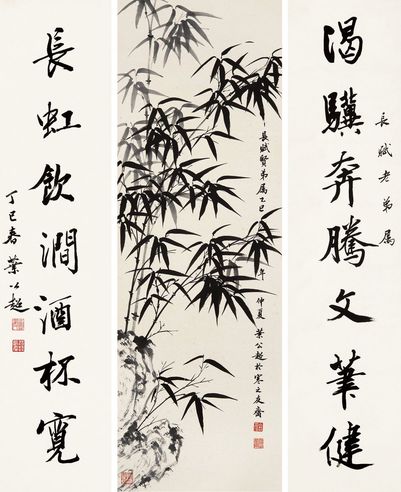 渴驥奔騰文筆健
長賦老弟属
長賦賢弟属乙巳
年仲夏葉公超於寒之友齋
長虹飲澗酒杯寬
丁巳春葉公超